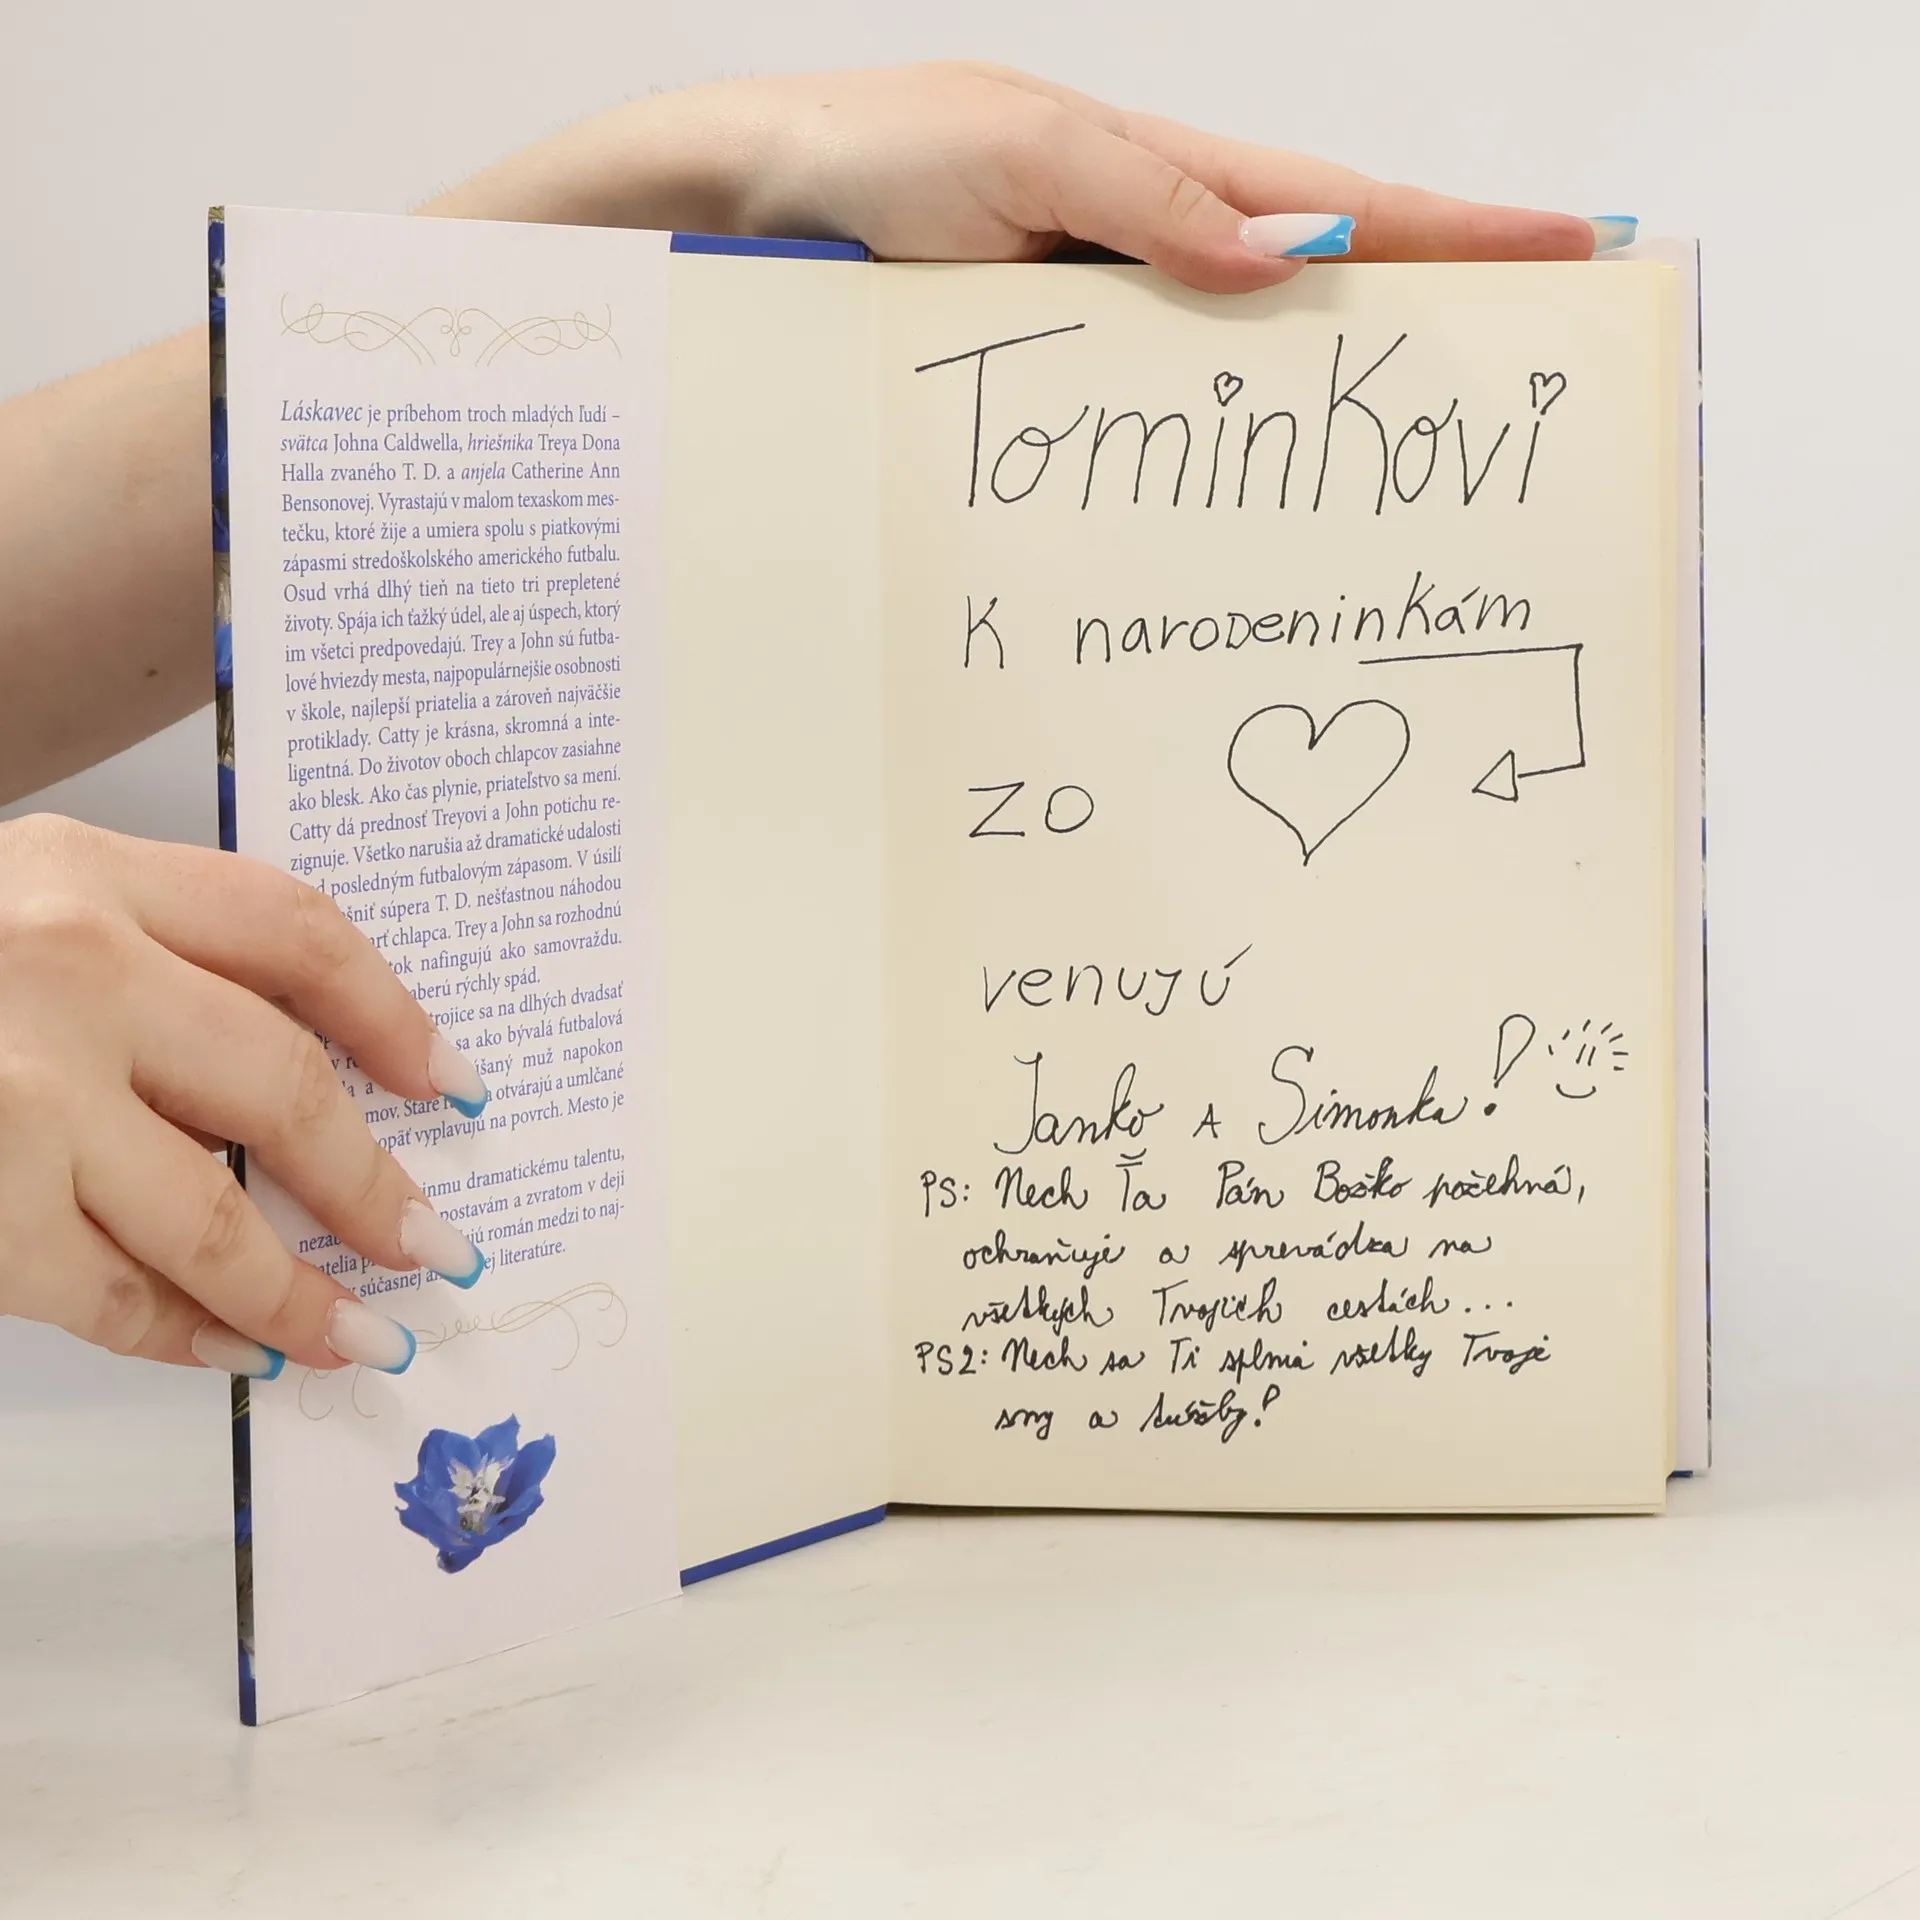 Láskavec je príbehom troch mladých ľudí –
svätca Johna Caldwella, hriešnika Treya Dona
Halla zvaného T. D. a anjela Catherine Ann
Bensonovej. Vyrastajú v malom texaskom mes-
tečku, ktoré žije a umiera spolu s piatkovými
zápasmi stredoškolského amerického futbalu.
Osud vrhá dlhý tieň na tieto tri prepletené
životy. Spája ich ťažký údel, ale aj úspech, ktorý
im všetci predpovedajú. Trey a John sú futba-
lové hviezdy mesta, najpopulárnejšie osobnosti
v škole, najlepší priatelia a zároveň najväčšie
protiklady. Catty je krásna, skromná a inte-
ligentná. Do životov oboch chlapcov zasiahne
ako blesk. Ako čas plynie, priateľstvo sa mení.
Catty dá prednosť Treyovi a John potichu re-
zignuje. Všetko narušia až dramatické udalosti
posledným futbalovým zápasom. V úsilí
súpera T. D. nešťastnou náhodou
chlapca. Trey a John sa rozhodnú
nafingujú ako samovraždu.
rýchly spád.
trojice sa na dlhých dvadsať
sa ako bývalá futbalová
muž napokon
otvárajú a umlčané
opäť vyplavujú na povrch. Mesto je
dramatickému talentu,
postavám a zvratom v deji
román medzi to naj-
súčasnej literatúre.
TominKovi
K narodeninkám
zo
venujú
Janko a Simonka!
PS: Nech Ťa Pán Božko požehná,
ochraňuje a sprevádza na
všetkých Tvojich cestách...
PS2: Nech sa Ti splnia všetky Tvoje
sny a túžby!